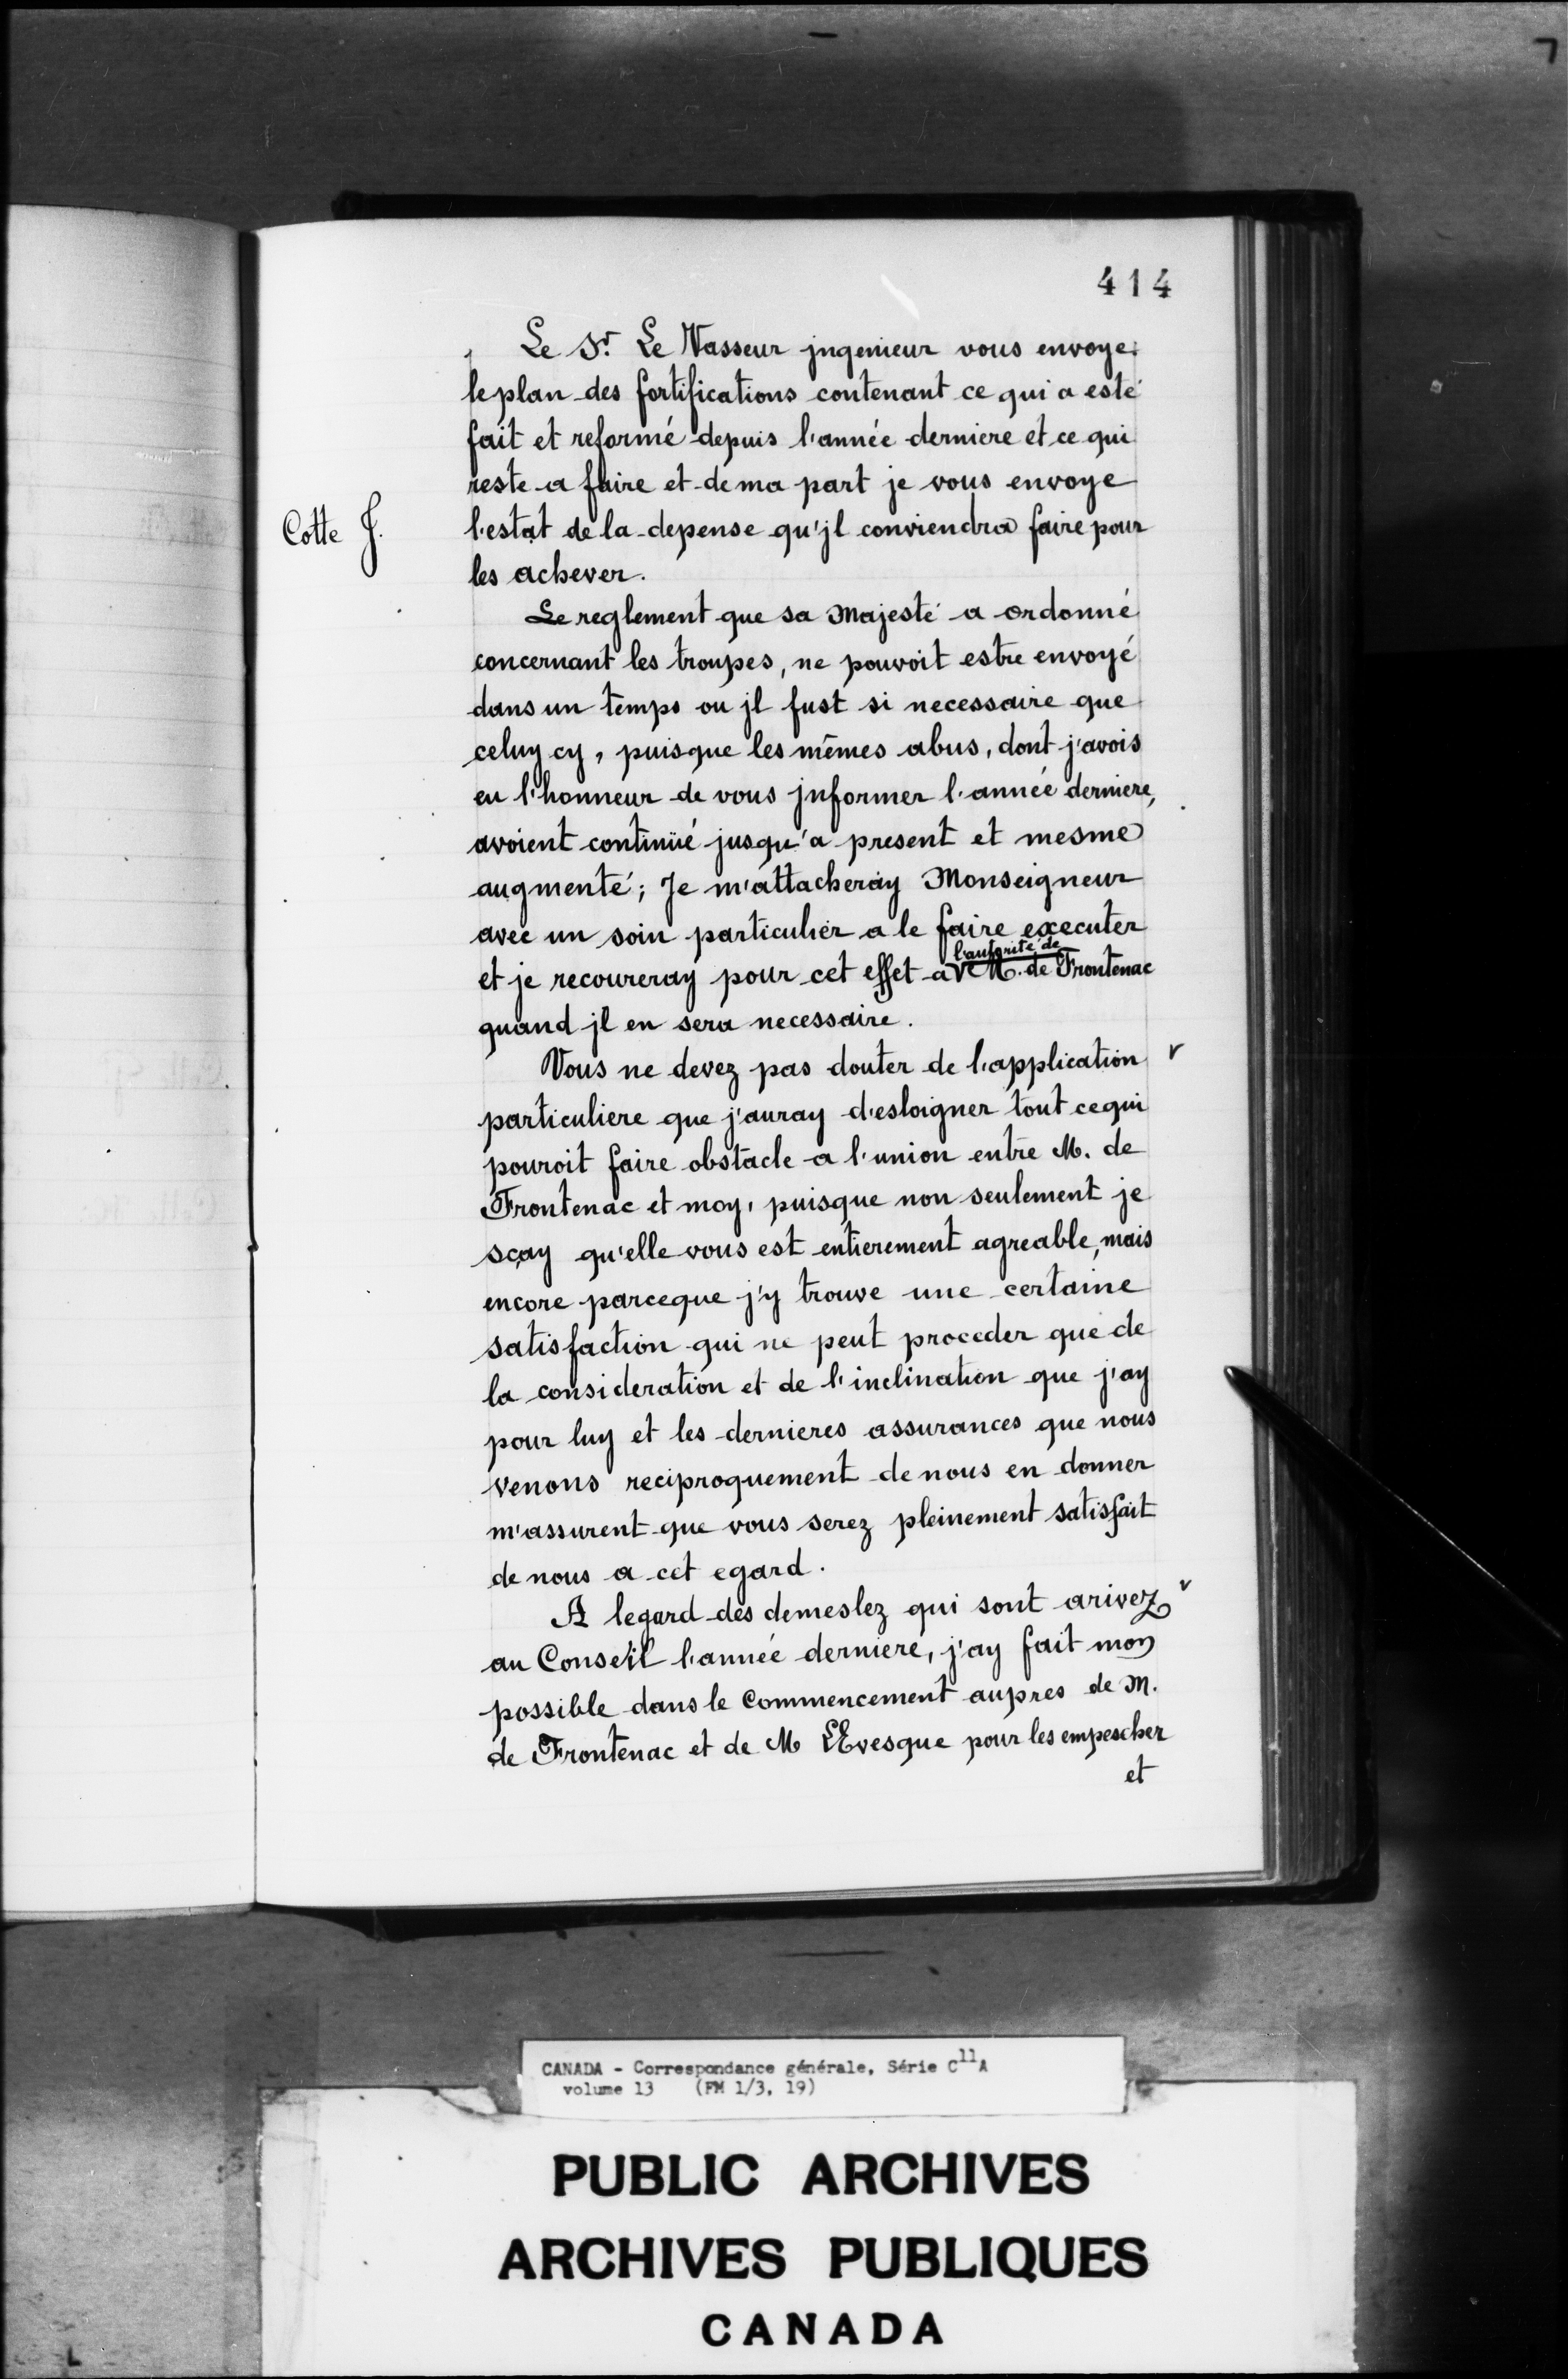 414
Le Sr. Le Vasseur jngenieur vous envoye
le plan des fortifications contenant ce qui a esté
fait et reformé depuis l'année derniere et ce qui
reste a faire et de ma part je vous envoye
Cotte J.
l'estat de la depense qu'jl conviendra faire pour
les achever.
Le reglement que sa Majesté a ordonné
concernant les troupes, ne pouvoit estre envoyé
dans un temps ou jl fust si necessaire que
celuy cy, puisque les mêmes abus, dont j'avois
eu l'honneur de vous jnformer l'année derniere,
avoient continüé jusqu'a present et mesme
augmenté; Je m'attacheray Monseigneur
avec un soin particulier a le faire executer
l'autorité de
et je recoureray pour cet effet a M. de Frontenac
quand jl en sera necessaire.
Vous ne devez pas douter de l'application
particuliere que j'auray d'esloigner tout ce qui
pouroit faire obstacle a l'union entre M. de
Frontenac et moy, puisque non seulement je
sçay qu'elle vous est entierement agreable, mais
encore parceque j'y trouve une certaine
satisfaction qui ne peut proceder que de
la consideration et de l'inclination que j'ay
pour luy et les dernieres assurances que nous
venons reciproquement de nous en donner
m'assurent que vous serez pleinement satisfait
de nous a cet egard.
A legard des demeslez qui sont arivez
au Conseil l'année derniere, j'ay fait mon
possible dans le Commencement aupres de M.
de Frontenac et de M LEvesque pour les empescher
et
CANADA - Correspondance générale, Série C11A
volume 13 (FM 1/3, 19)
PUBLIC ARCHIVES
ARCHIVES PUBLIQUES
CANADA